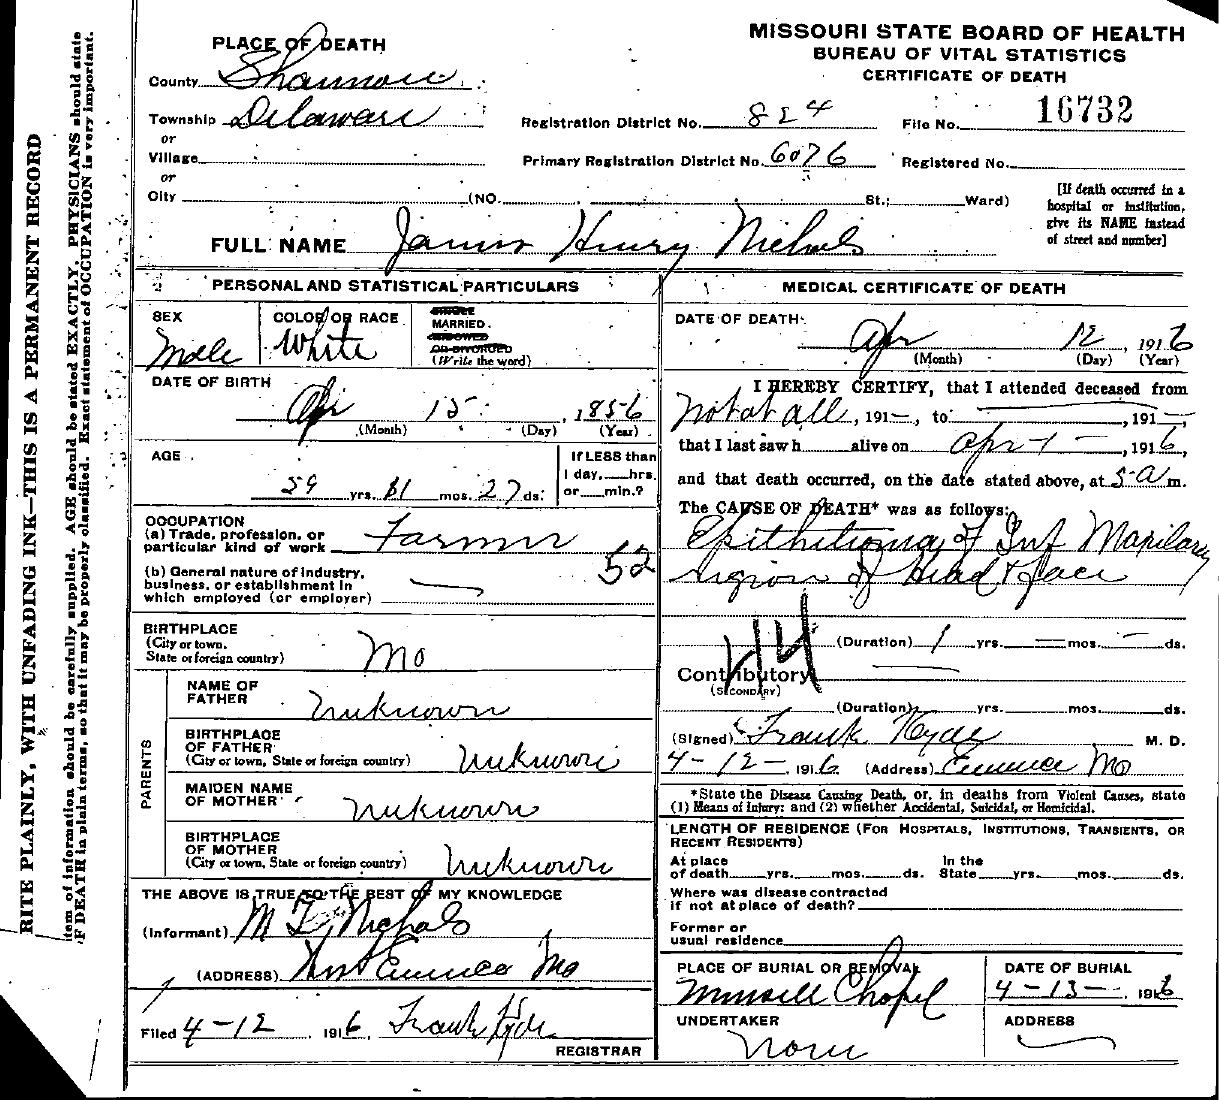 MISSOURI STATE BOARD OF HEALTH
BUREAU OF VITAL STATISTICS
CERTIFICATE OF DEATH
PLACE OF DEATH
County Shannon
Township Delaware
or
Village
or
City (NO. St.; Ward)
Registration District No. 824
File No. 16732
Primary Registration District No. 6076
Registered No.
[If death occurred in a
hospital or institution,
give its NAME instead
of street and number]
FULL NAME James Henry Nichols
PERSONAL AND STATISTICAL PARTICULARS
SEX
Male
COLOR OR RACE
White
SINGLE
MARRIED
WIDOWED
OR DIVORCED
(Write the word)
DATE OF BIRTH
Apr 15, 1856
(Month) (Day) (Year)
AGE
59 yrs. 11 mos. 27 ds.
If LESS than
1 day, hrs.
or min.?
OCCUPATION
(a) Trade, profession, or
particular kind of work Farmer
52
(b) General nature of industry,
business, or establishment in
which employed (or employer)
BIRTHPLACE
(City or town,
State or foreign country) Mo
PARENTS
NAME OF
FATHER Unknown
BIRTHPLACE
OF FATHER
(City or town, State or foreign country) Unknown
MAIDEN NAME
OF MOTHER Unknown
BIRTHPLACE
OF MOTHER
(City or town, State or foreign country) Unknown
THE ABOVE IS TRUE TO THE BEST OF MY KNOWLEDGE
(Informant) M L Nichols
(ADDRESS) Eminence Mo
Filed 4-12, 1916, Frank Hyde
REGISTRAR
MEDICAL CERTIFICATE OF DEATH
DATE OF DEATH
Apr 12, 1916
(Month) (Day) (Year)
I HEREBY CERTIFY, that I attended deceased from
Not at all, 191—, to —, 191—,
that I last saw h alive on Apr-1-, 1916,
and that death occurred, on the date stated above, at 5 a m.
The CAUSE OF DEATH* was as follows:
Epithelioma of Inf Maxilary
region of Head & face
44
(Duration) 1 yrs. — mos. — ds.
Contributory
(SECONDARY)
(Duration) yrs. mos. ds.
(Signed) Frank Hyde M. D.
4-12-, 1916 (Address) Eminence Mo
*State the Disease Causing Death, or, in deaths from Violent Causes, state
(1) Means of Injury; and (2) whether Accidental, Suicidal, or Homicidal.
LENGTH OF RESIDENCE (FOR HOSPITALS, INSTITUTIONS, TRANSIENTS, OR
RECENT RESIDENTS)
At place In the
of death yrs. mos. ds. State yrs. mos. ds.
Where was disease contracted
if not at place of death?
Former or
usual residence
PLACE OF BURIAL OR REMOVAL
Munsell Chapel
DATE OF BURIAL
4-13-, 1916
UNDERTAKER
None
ADDRESS
RITE PLAINLY, WITH UNFADING INK—THIS IS A PERMANENT RECORD
item of information should be carefully supplied. AGE should be stated EXACTLY. PHYSICIANS should state
F DEATH in plain terms, so that it may be properly classified. Exact statement of OCCUPATION is very important.